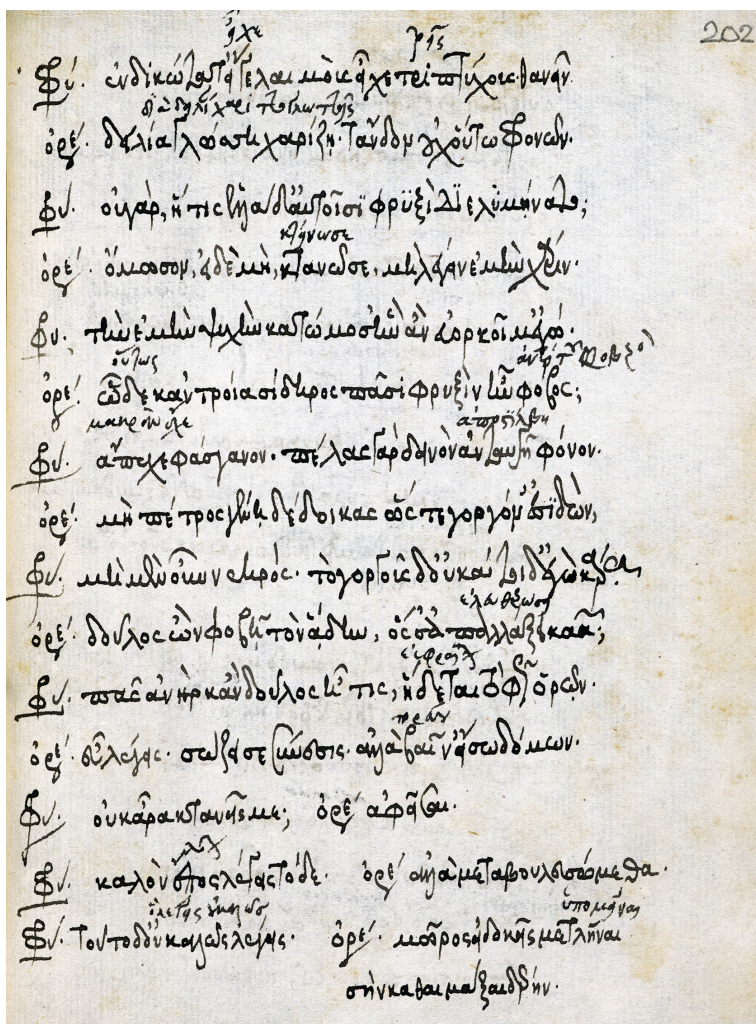 εἶχε τρεῖς
Φρύ. ἐνδικώτατ' εἴ γε λαιμοὺς εἶχε τριπτύχους θανεῖν.
ὀρέ. δειλία γλώσση χαρίζη· τἄνδον οὐχ οὕτω φρονῶν.
Φρύ. οὐ γάρ, ἥ τις ἑλλάδ' αὐτοῖσϊ φρυξὶ διελυμήνατο;
κτείνω σε
ὀρέ. ὄμοσον, εἰ δὲ μὴ, κτανῶ σε, μὴ λέγειν ἐμὴν χάριν.
Φρύ. τὴν ἐμὴν ψυχὴν κατώμοσ' ἣν ἂν εὐορκοῖμ' ἐγώ.
οὕτως
ὀρέ. ὧδε κἀν τροία σίδηρος πᾶσι φρυξὶν ἦν φόβος;
Φρύ. ἄπεχε φάσγανον· πέλας γὰρ δεινὸν ἀνταυγεῖ φόνον.
ὀρέ. μὴ πέτρος γένη δέδοικας ὥστε γοργόν' εἰσϊδών,
Φρύ. μὴ μὲν οὖν νεκρός· τὸ γοργοῦς δ' οὐ κάτοιδ' ἐγὼ κάρα
ἐλευθερώσει
ὀρέ. δοῦλος ὢν φοβῆ τὸν ἅδην, ὅς σ' ἀπαλλάξει κακῶν;
Φρύ. πᾶς ἀνὴρ κἂν δοῦλος ἦ τις, ἥδεται τὸ φῶς ὁρῶν.
ὀρέ. εὖ λέγεις· σώζει σε σύνεσις· ἀλλὰ βαῖν' ἔσω δόμων.
Φρύ. οὐκ ἄρα κτανεῖς με; ὀρέ ἀφεῖσαι.
Φρύ. καλὸν ἔπος λέγεις τόδε· ὀρέ ἀλλὰ μεταβουλευσόμεθα.
Φρύ. τοῦτο δ' οὐ καλῶς λέγεις· ὀρέ. μῶρος εἰ δοκεῖς με τλῆναι
σὴν καθαιμάξαι δέρην·
202